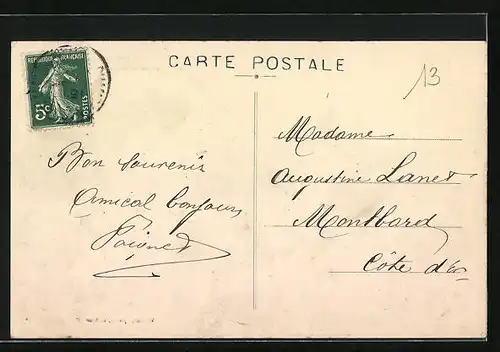 CARTE POSTALE
13
REPUBLIQUE FRANÇAISE
5c
POSTES
Bon souvenir
Amical bonjour
Madame
Augustine Lanet
Montbard
Côte d'Or